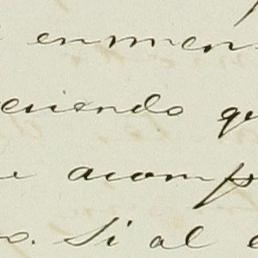 enmen
ciendo qu
e acomp
o. Si al e